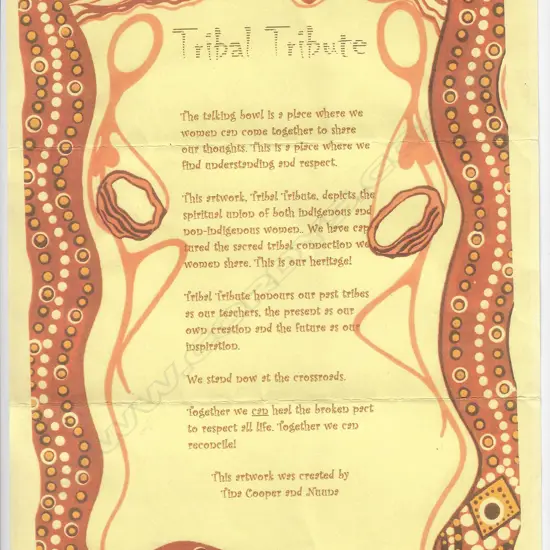 Tribal Tribute
The talking bowl is a place where we
women can come together to share
our thoughts. This is a place where we
find understanding and respect.
This artwork, Tribal Tribute, depicts the
spiritual union of both indigenous and
non-indigenous women.. We have cap
tured the sacred tribal connection we
women share. This is our heritage!
Tribal Tribute honours our past tribes
as our teachers, the present as our
own creation and the future as our
inspiration.
We stand now at the crossroads.
Together we can heal the broken pact
to respect all life. Together we can
reconcile!
This artwork was created by
Tina Cooper and Nuuna